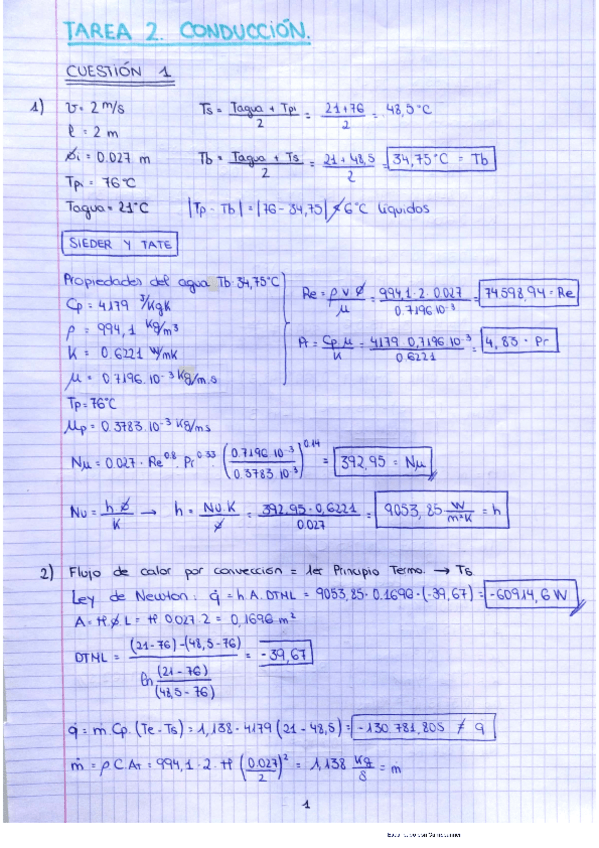 TAREA 2. CONDUCCIÓN.
CUESTIÓN 1
1) v = 2 m/s   Ts = (Tagua + Tpi)/2 = (21+76)/2 = 48,5°C
l = 2 m
øi = 0.027 m   Tb = (Tagua + Ts)/2 = (21+48,5)/2 = 34,75°C = Tb
Tpi = 76°C
Tagua = 21°C   |Tp - Tb| = |76 - 34,75| ≮ 6°C líquidos
SIEDER Y TATE
Propiedades del agua Tb 34,75°C
Cp = 4179 J/KgK   Re = ρ v ø/μ = 994,1 · 2 · 0.027/0.7196 10⁻³ = 74598,94 = Re
ρ = 994,1 Kg/m³
K = 0.6221 W/mK   Pr = Cp μ/K = 4179 0,7196 10⁻³/0.6221 = 4,83 = Pr
μ = 0.7196.10⁻³ Kg/m.s
Tp = 76°C
μp = 0.3783.10⁻³ Kg/ms
Nμ = 0.027 · Re^0.8 · Pr^0.33 (0.7196 10⁻³/0.3783.10⁻³)^0.14 = 392,95 = Nμ
Nu = h ø/K → h = Nu.K/ø = 392.95 · 0,6221/0.027 = 9053,85 W/m²K = h
2) Flujo de calor por convección = 1er Principio Termo. → Ts
Ley de Newton: q̇ = h A. DTML = 9053,85 · 0.1696 · (-39,67) = -60914,6 W
A = π ø L = π 0.027 · 2 = 0,1696 m²
DTML = (21-76)-(48,5-76)/ln (21-76)/(48,5-76) = -39,67
q̇ = ṁ. Cp. (Te - Ts) = 1,138 · 4179 (21 - 48,5) = -130.781,805 ≠ q
ṁ = ρ C At = 994,1 · 2 · π (0.027/2)² = 1,138 kg/s = ṁ
1